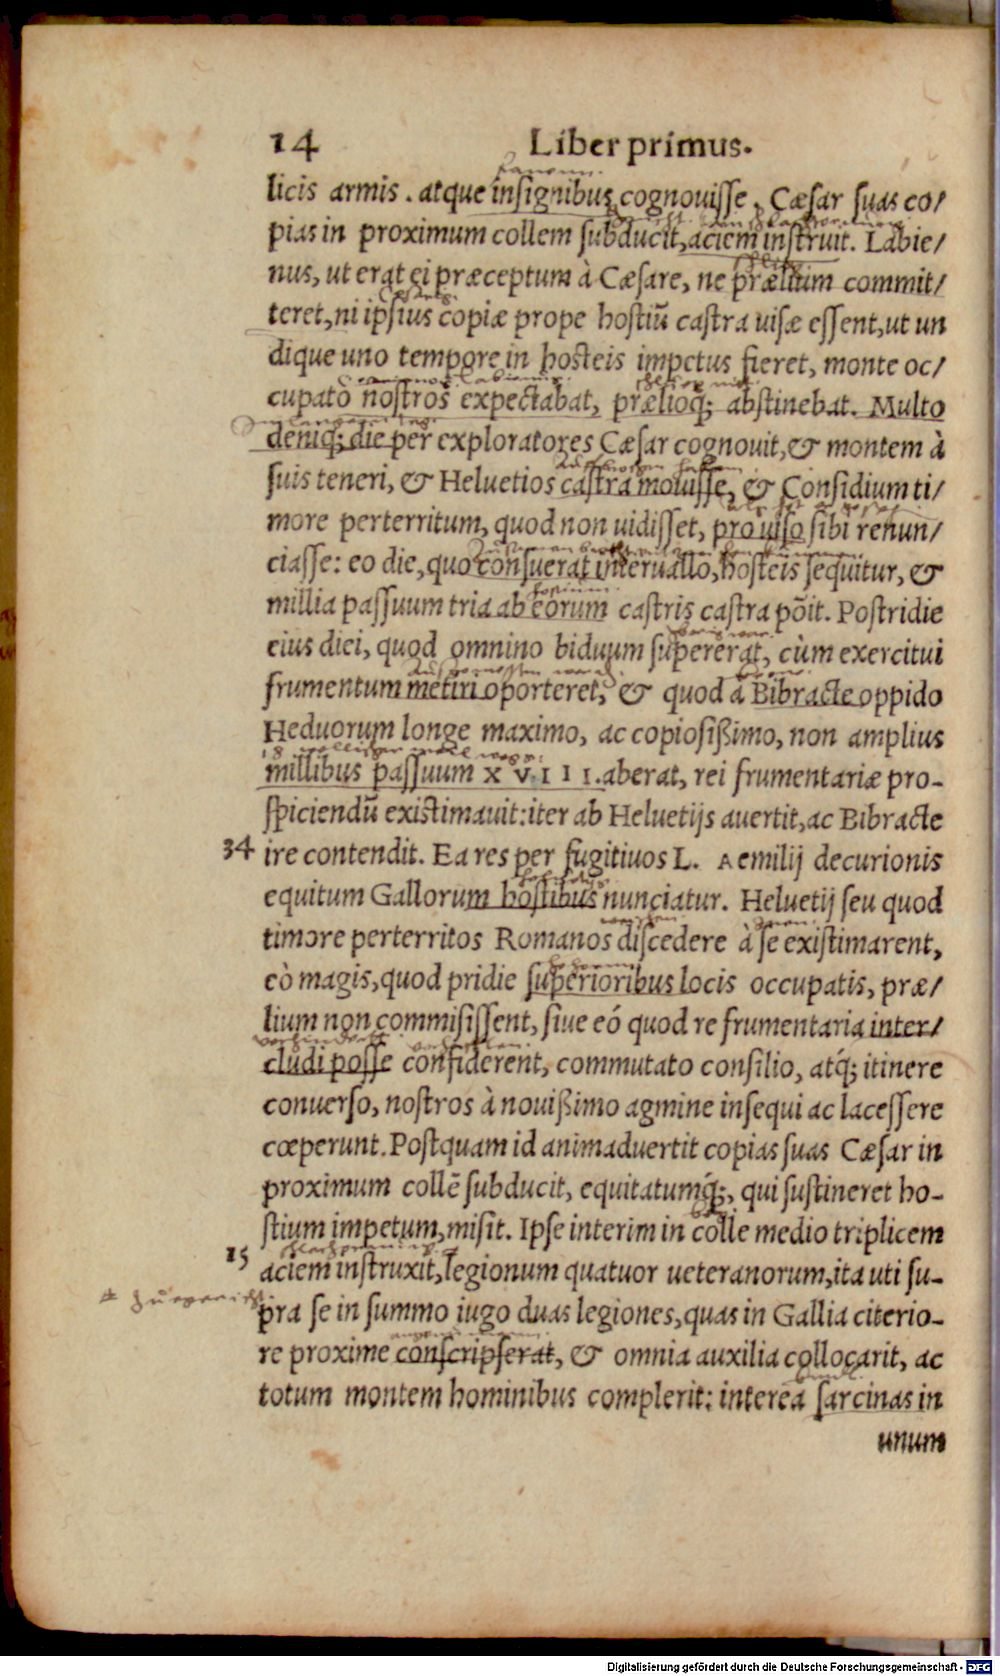 14 Liber primus.
licis armis . atque insignibus cognouisse . Cæsar suas co/
pias in proximum collem subducit, aciem instruit. Labie/
nus, ut erat ei præceptum à Cæsare, ne prælium commit/
teret, ni ipsius copiæ prope hostiũ castra uisæ essent, ut un
dique uno tempore in hosteis impetus fieret, monte oc/
cupato nostros expectabat, prælioq; abstinebat. Multo
deniq; die per exploratores Cæsar cognouit, & montem à
suis teneri, & Heluetios castra mouisse, & Considium ti/
more perterritum, quod non uidisset, pro uiso sibi renun/
ciasse: eo die, quo consuerat interuallo, hosteis sequitur, &
millia passuum tria ab eorum castris castra põit. Postridie
eius diei, quod omnino biduum supererat, cùm exercitui
frumentum metiri oporteret, & quod à Bibracte oppido
Heduorum longe maximo, ac copiosißimo, non amplius
millibus passuum X V. I I I. aberat, rei frumentariæ pro-
spiciendũ existimauit: iter ab Heluetijs auertit, ac Bibracte
34 ire contendit. Ea res per fugitiuos L. Aemilij decurionis
equitum Gallorum hostibus nunciatur. Heluetij seu quod
timore perterritos Romanos discedere à se existimarent,
eò magis, quod pridie superioribus locis occupatis, præ/
lium non commisissent, siue eó quod re frumentaria inter/
cludi posse confiderent, commutato consilio, atq́; itinere
conuerso, nostros à nouißimo agmine insequi ac lacessere
cœperunt. Postquam id animaduertit copias suas Cæsar in
proximum collẽ subducit, equitatumq́;, qui sustineret ho-
stium impetum, misit. Ipse interim in colle medio triplicem
15 aciem instruxit, legionum quatuor ueteranorum, ita uti su-
pra se in summo iugo duas legiones, quas in Gallia citerio-
re proxime conscripserat, & omnia auxilia collocarit, ac
totum montem hominibus complerit: interea sarcinas in
unum
Digitalisierung gefördert durch die Deutsche Forschungsgemeinschaft - DFG